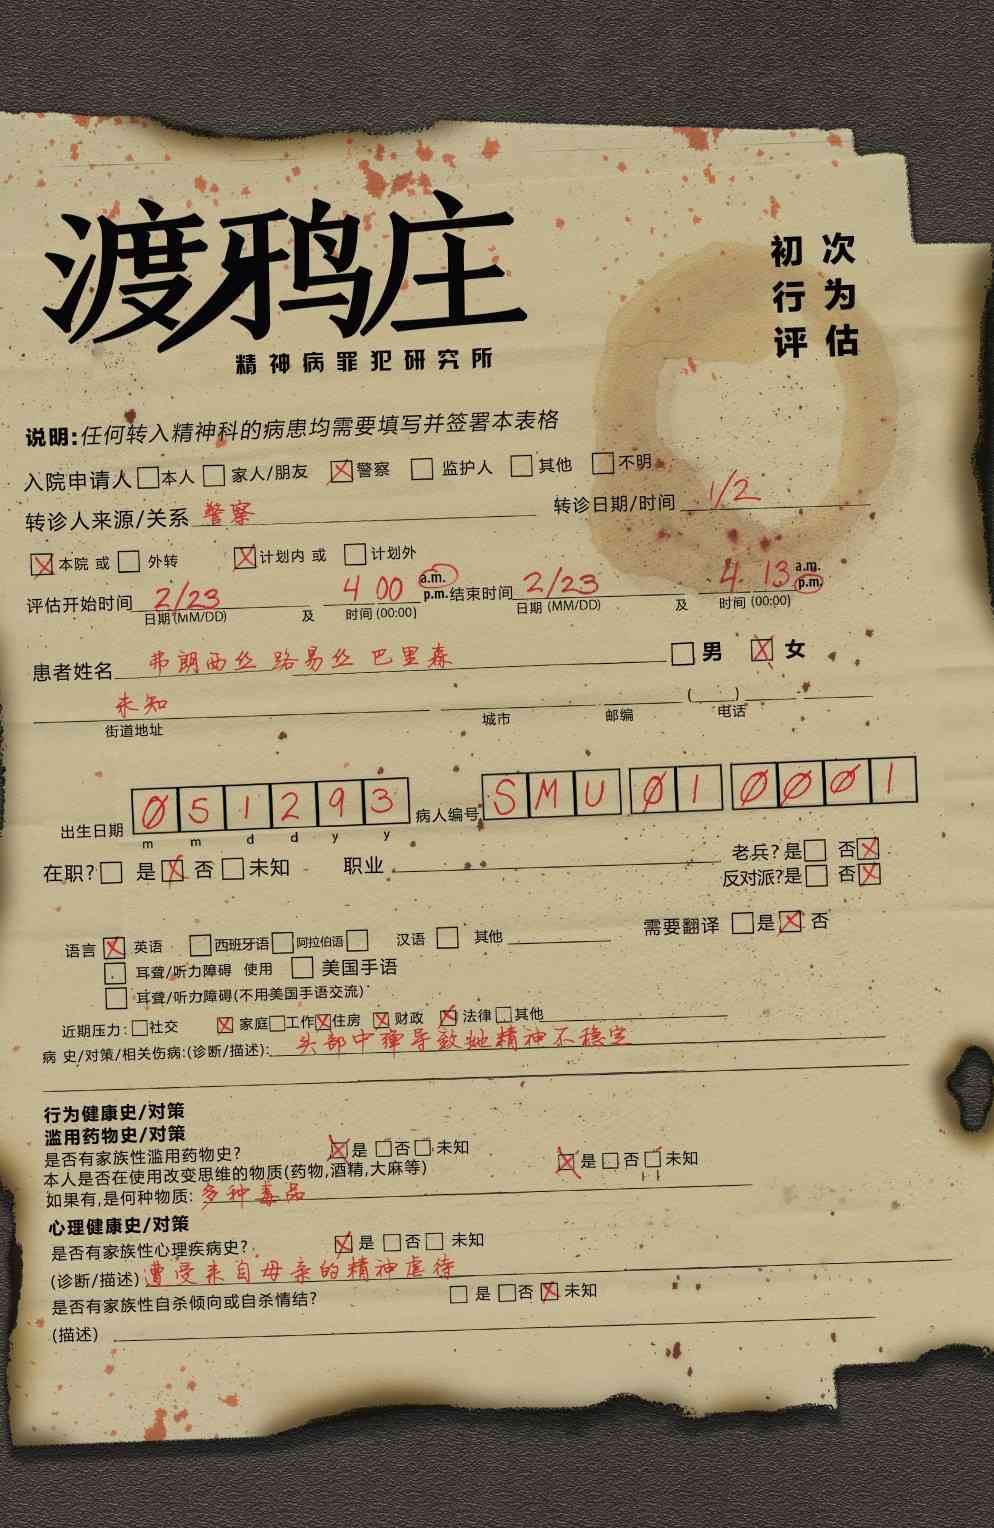 渡鸦庄
精神病罪犯研究所
初次
行为
评估
说明:任何转入精神科的病患均需要填写并签署本表格
入院申请人 □本人 □ 家人/朋友 ☒警察 □ 监护人 □ 其他 □ 不明
转诊人来源/关系 警察 转诊日期/时间 1/2
☒ 本院 或 □ 外转 ☒ 计划内 或 □ 计划外
评估开始时间 2/23 4 00 a.m. p.m. 结束时间 2/23 4 13 a.m. p.m.
日期(MM/DD) 及 时间 (00:00) 日期 (MM/DD) 及 时间 (00:00)
患者姓名 弗朗西丝 路易丝 巴里森 □ 男 ☒ 女
未知 ( )
街道地址 城市 邮编 电话
出生日期 051293 病人编号 SMU 01 0001
m m d d y y
在职? □ 是 ☒ 否 □ 未知 职业 老兵? 是□ 否☒
反对派?是□ 否☒
需要翻译 □是 ☒ 否
语言 ☒ 英语 □西班牙语 □阿拉伯语 □ 汉语 □ 其他
□ 耳聋/听力障碍 使用 □ 美国手语
□ 耳聋/听力障碍(不用美国手语交流)
近期压力: □社交 ☒ 家庭 □工作 ☒住房 ☒ 财政 ☒ 法律 □其他
病 史/对策/相关伤病:(诊断/描述): 头部中弹导致她精神不稳定
行为健康史/对策
滥用药物史/对策
是否有家族性滥用药物史? ☒是 □否 □ 未知
本人是否在使用改变思维的物质(药物,酒精,大麻等) ☒ 是 □ 否 □ 未知
如果有,是何种物质: 多种毒品
心理健康史/对策
是否有家族性心理疾病史? ☒ 是 □否 □ 未知
(诊断/描述) 遭受来自母亲的精神虐待
是否有家族性自杀倾向或自杀情结? □ 是 □否 ☒ 未知
(描述)